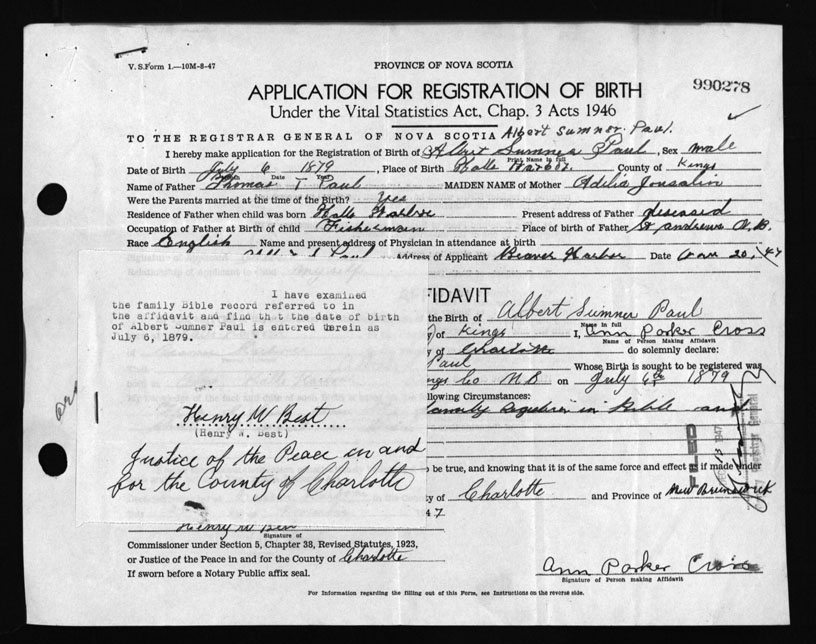 V. S. Form 1.—10M-8-47
PROVINCE OF NOVA SCOTIA
990278
APPLICATION FOR REGISTRATION OF BIRTH
Under the Vital Statistics Act, Chap. 3 Acts 1946
Albert Sumner Paul.
TO THE REGISTRAR GENERAL OF NOVA SCOTIA
I hereby make application for the Registration of Birth of Albert Sumner Paul, Sex male
Print Name in full
Date of Birth July 6 1879, Place of Birth Halls Harbor. County of Kings
Date
Name of Father Thomas T Paul MAIDEN NAME of Mother Adelia
Were the Parents married at the time of the Birth? Yes
Residence of Father when child was born Halls Present address of Father deseased
Occupation of Father at Birth of child Fisherman Place of birth of Father St andrews N.B.
Race English Name and present address of Physician in attendance at birth
Paul Address of Applicant Beaver Harbor Date 20, 47
I have examined
the family Bible record referred to in
the affidavit and find that the date of birth
of Albert Sumner Paul is entered therein as
July 6, 1879.
Henry W Best
(Henry W. Best)
Justice of the Peace in and
for the County of Charlotte
FIDAVIT
the Birth of Albert Sumner Paul
Name in full
of Kings I, Ann Parker Cross
Name of Person Making Affidavit
y of Charlotte do solemnly declare:
Paul Whose Birth is sought to be registered was
Co N B on July 6th 1879
llowing Circumstances:
family in Bible and
FILED
1947
be true, and knowing that it is of the same force and effect as if made under
y of Charlotte and Province of New Brunswick
47
Henry W Best
Signature of
Commissioner under Section 5, Chapter 38, Revised Statutes, 1923,
or Justice of the Peace in and for the County of Charlotte
If sworn before a Notary Public affix seal.
Ann Parker Cross
Signature of Person making Affidavit
For Information regarding the filling out of this Form, see Instructions on the reverse side.